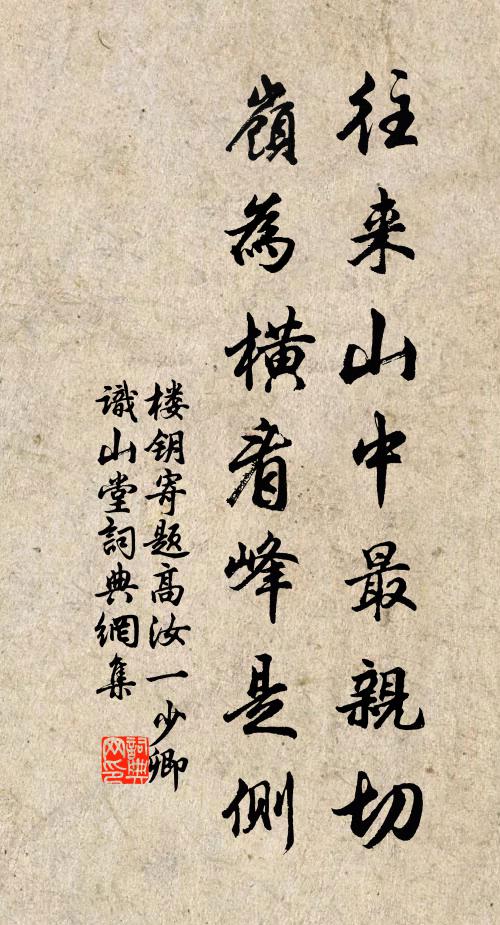 往来山中最親切
嶺為橫看峰是側
楼钥寄题高汝一少卿
識山堂詞典網集
詞典
网印